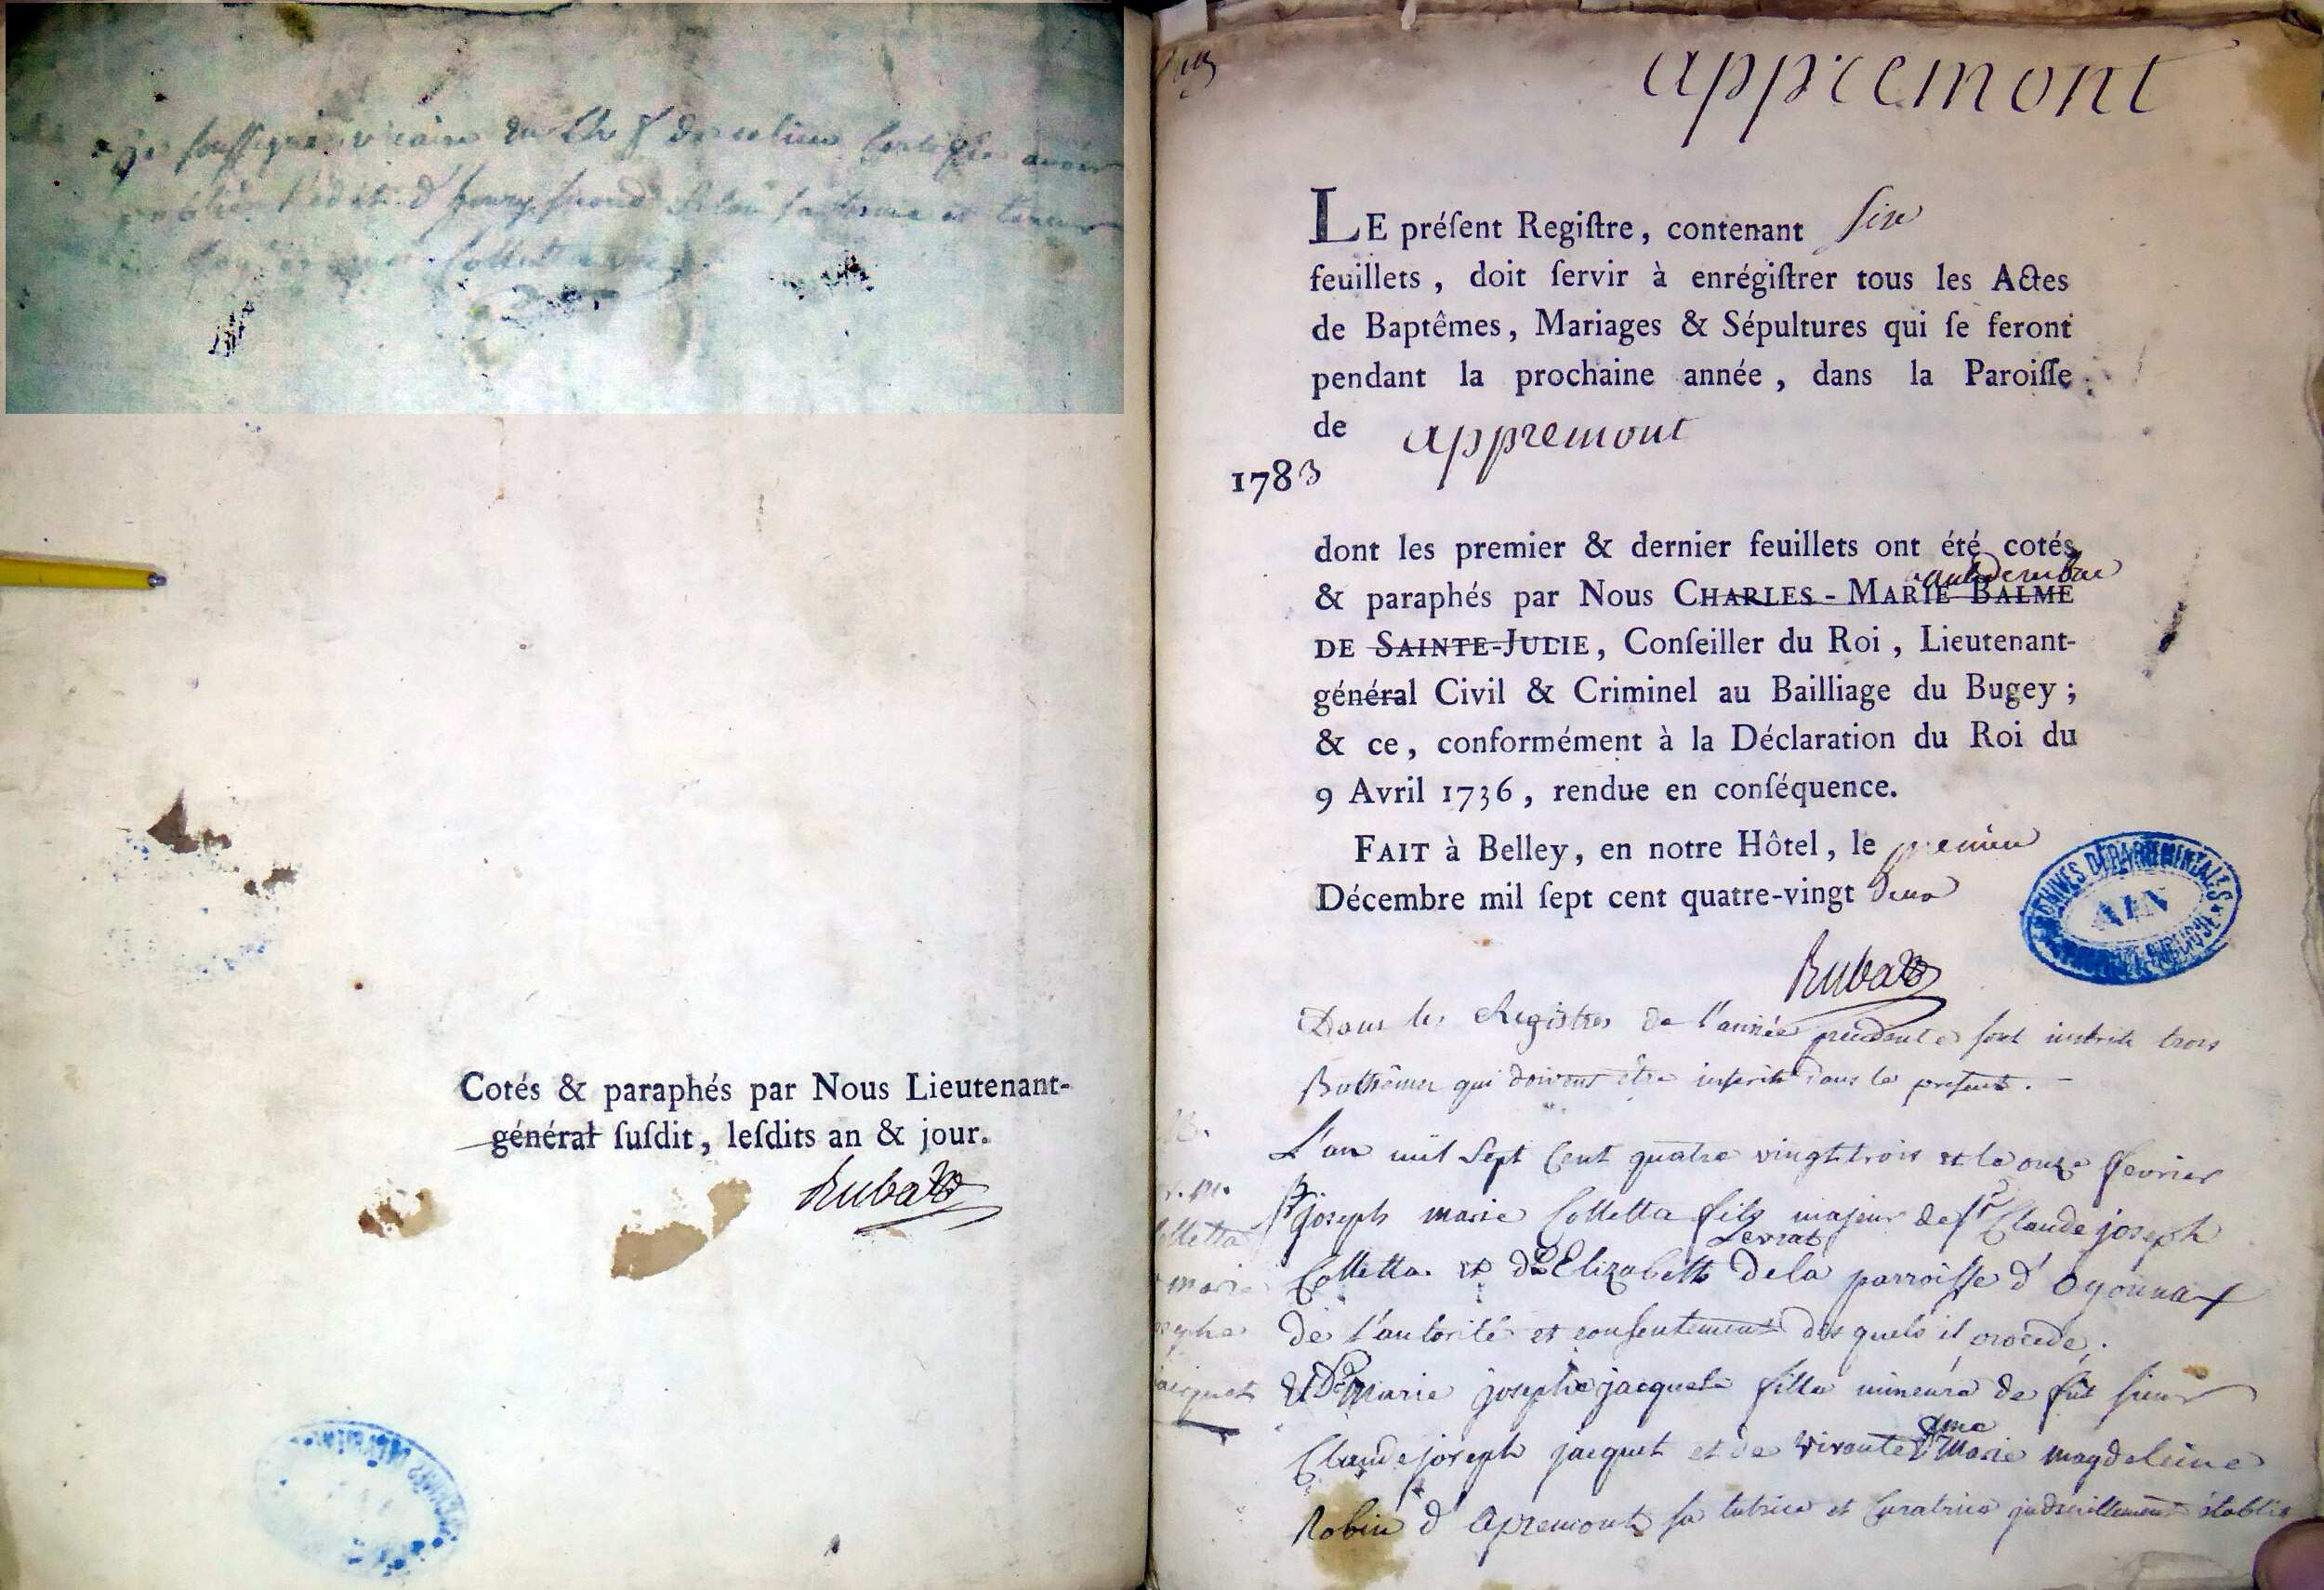 je soussigné vicaire en Chef de ce lieu Certifie avoir
publié l'edit d'henry second selon sa forme et teneur
Collet
Cotés & paraphés par Nous Lieutenant-
général ſuſdit, leſdits an & jour.
Rubat
appremont
LE préſent Regiſtre, contenant six
feuillets, doit ſervir à enrégiſtrer tous les Actes
de Baptêmes, Mariages & Sépultures qui ſe feront
pendant la prochaine année, dans la Paroiſſe
de appremont
1783
dont les premier & dernier feuillets ont été cotés
& paraphés par Nous CHARLES-MARIE BALME
DE SAINTE-JULIE, Conſeiller du Roi, Lieutenant-
général Civil & Criminel au Bailliage du Bugey;
& ce, conformément à la Déclaration du Roi du
9 Avril 1736, rendue en conſéquence.
FAIT à Belley, en notre Hôtel, le premier
Décembre mil ſept cent quatre-vingt deux
ARCHIVES DÉPARTEMENTALES
AIN
Rubat
Dans les Registres de l'année precedente sont inscrits trois
Bathêmes qui doivent être inscrits dans le present.
L'an mil sept cent quatre vingt trois et le onze fevrier
Sr joseph marie Colletta fils majeur de Sr Claude joseph
Colletta et de Elizabeth Levrat de la parroisse d'Oyonnax
de l'autorité et consentement des quels il procede.
Et Dlle Marie josephe jacquet fille mineure de fut sieur
Claude joseph jacquet et de vivante dme Marie magdeleine
Robin d'apremont sa tutrice et Curatrice judiciellement établie
colletta
marie
josephe
jacquet